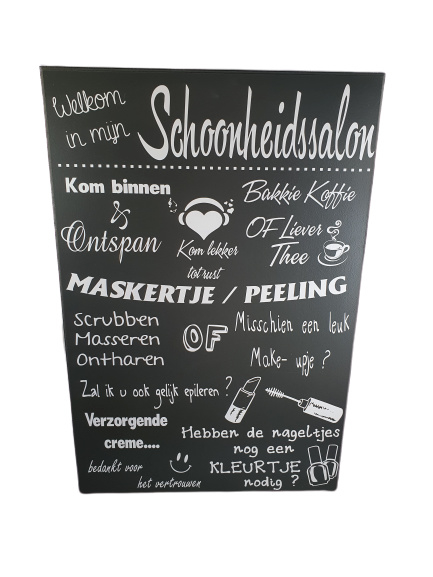 Welkom
in mijn
Schoonheidssalon
Kom binnen
&
Ontspan
Kom lekker
tot rust
Bakkie Koffie
OF Liever
Thee
MASKERTJE / PEELING
Scrubben
Masseren
Ontharen
OF
Misschien een leuk
Make- upje ?
Zal ik u ook gelijk epileren ?
Verzorgende
creme....
Hebben de nageltjes
nog een
KLEURTJE
nodig ?
bedankt voor
het vertrouwen